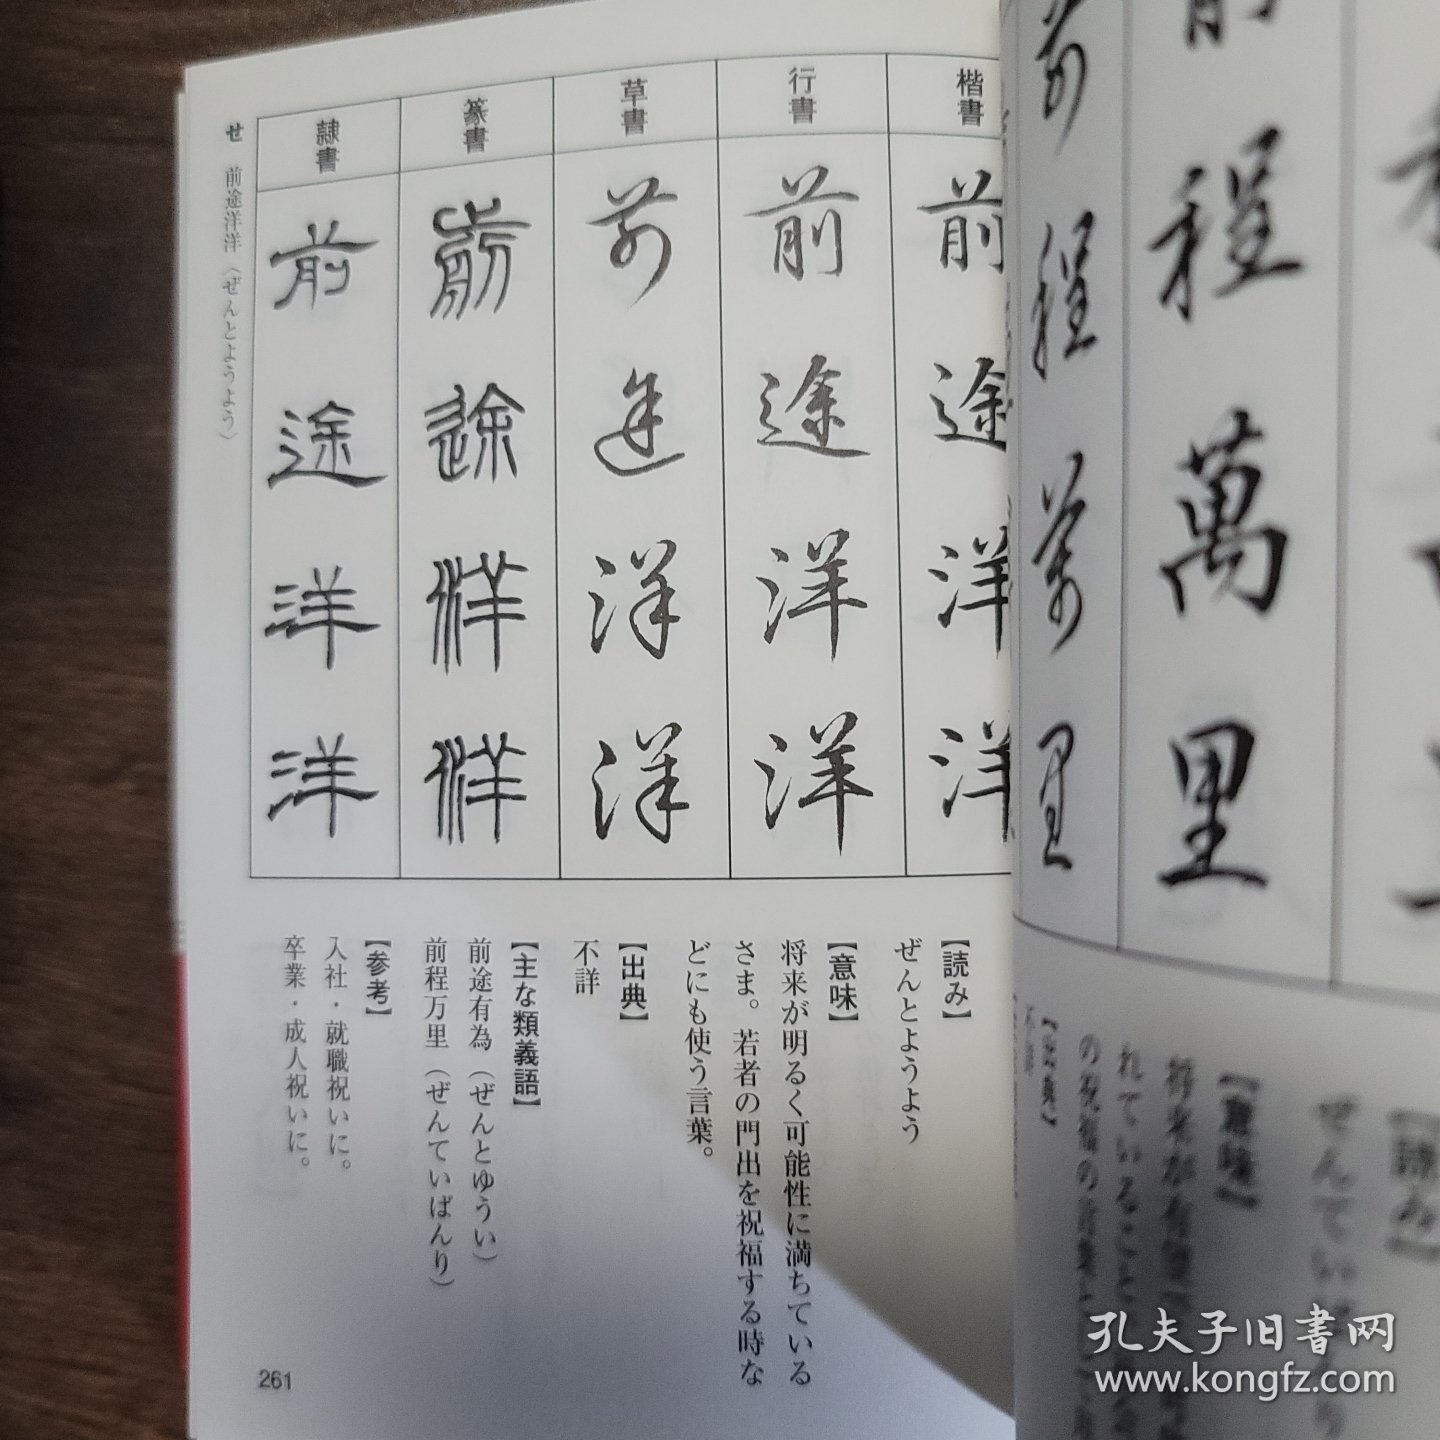 程萬里
程万里
楷書
前途洋洋
行書
前途洋洋
草書
前途洋洋
篆書
前途洋洋
隷書
前途洋洋
せ 前途洋洋（ぜんとようよう）
【読み】
ぜんとようよう
【意味】
将来が明るく可能性に満ちている
さま。若者の門出を祝福する時な
どにも使う言葉。
【出典】
不詳
【主な類義語】
前途有為（ぜんとゆうい）
前程万里（ぜんていばんり）
【参考】
入社・就職祝いに。
卒業・成人祝いに。
261
【読み】
ぜんてい
【意味】
将来が有
れていること
の祝福の言葉と
【出典】
不詳
孔夫子旧书网
www.kongfz.com